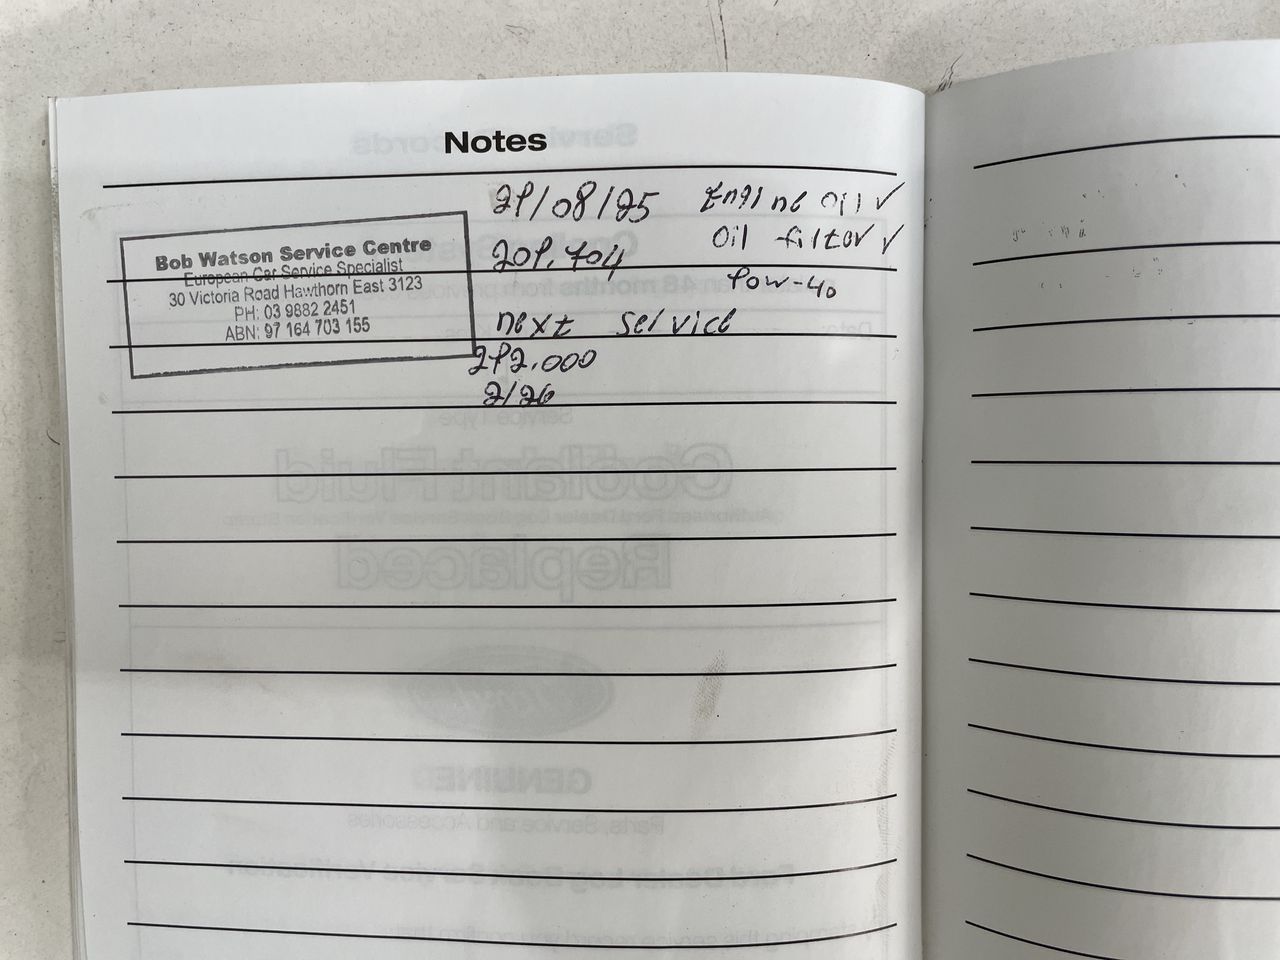 Notes
Bob Watson Service Centre
European Car Service Specialist
30 Victoria Road Hawthorn East 3123
PH: 03 9882 2451
ABN: 97 164 703 155
21/08/25 Engine oil ✓
201.704 Oil filter ✓
10w-40
next service
212.000
2/26